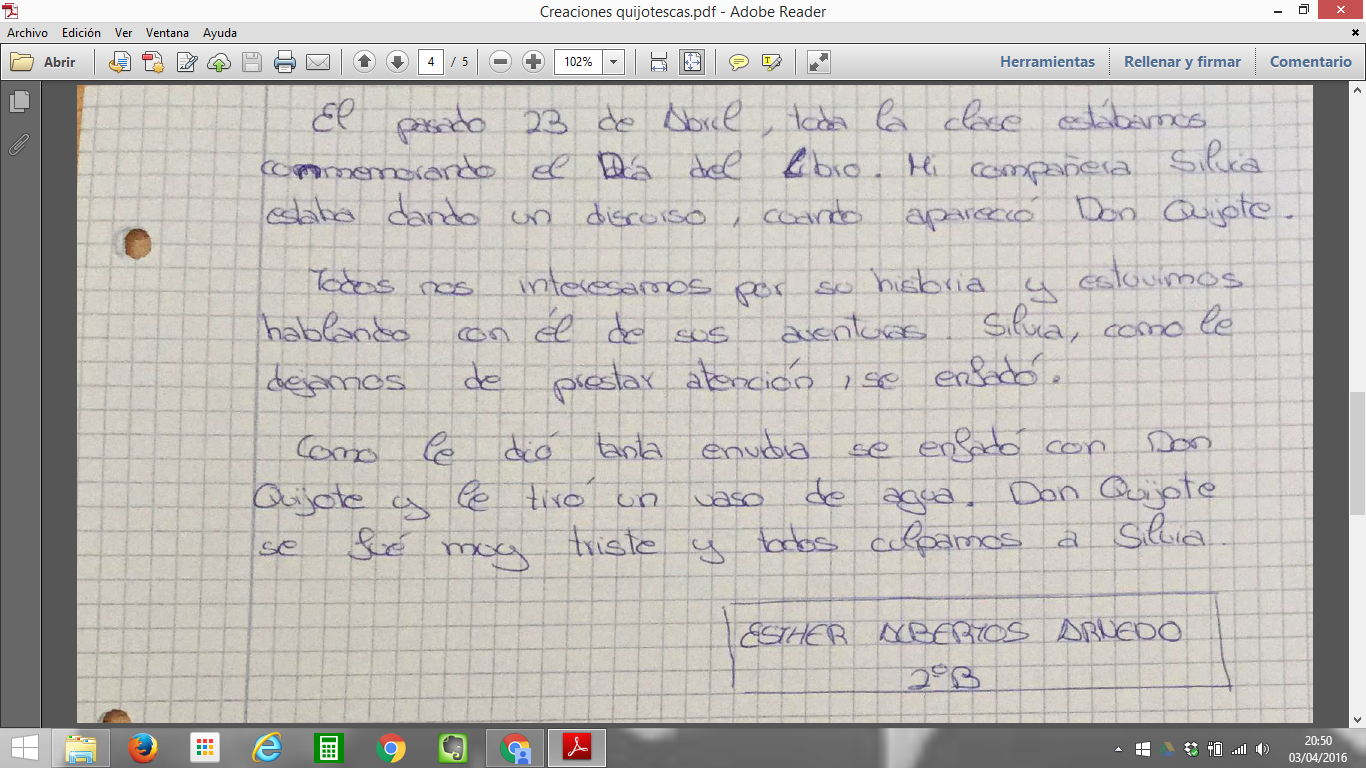 Creaciones quijotescas.pdf - Adobe Reader
Archivo Edición Ver Ventana Ayuda
Abrir 4 / 5 102% Herramientas Rellenar y firmar Comentario
El pasado 23 de Abril, toda la clase estábamos
conmemorando el Día del Libro. Mi compañera Silvia
estaba dando un discurso, cuando apareció Don Quijote.
Todos nos interesamos por su historia y estuvimos
hablando con él de sus aventuras. Silvia, como le
dejamos de prestar atención, se enfadó.
Como le dió tanta envidia se enfadó con Don
Quijote y le tiró un vaso de agua. Don Quijote
se fué muy triste y todos culpamos a Silvia.
ESTHER ALBERTOS ARNEDO
2ºB
20:50
03/04/2016